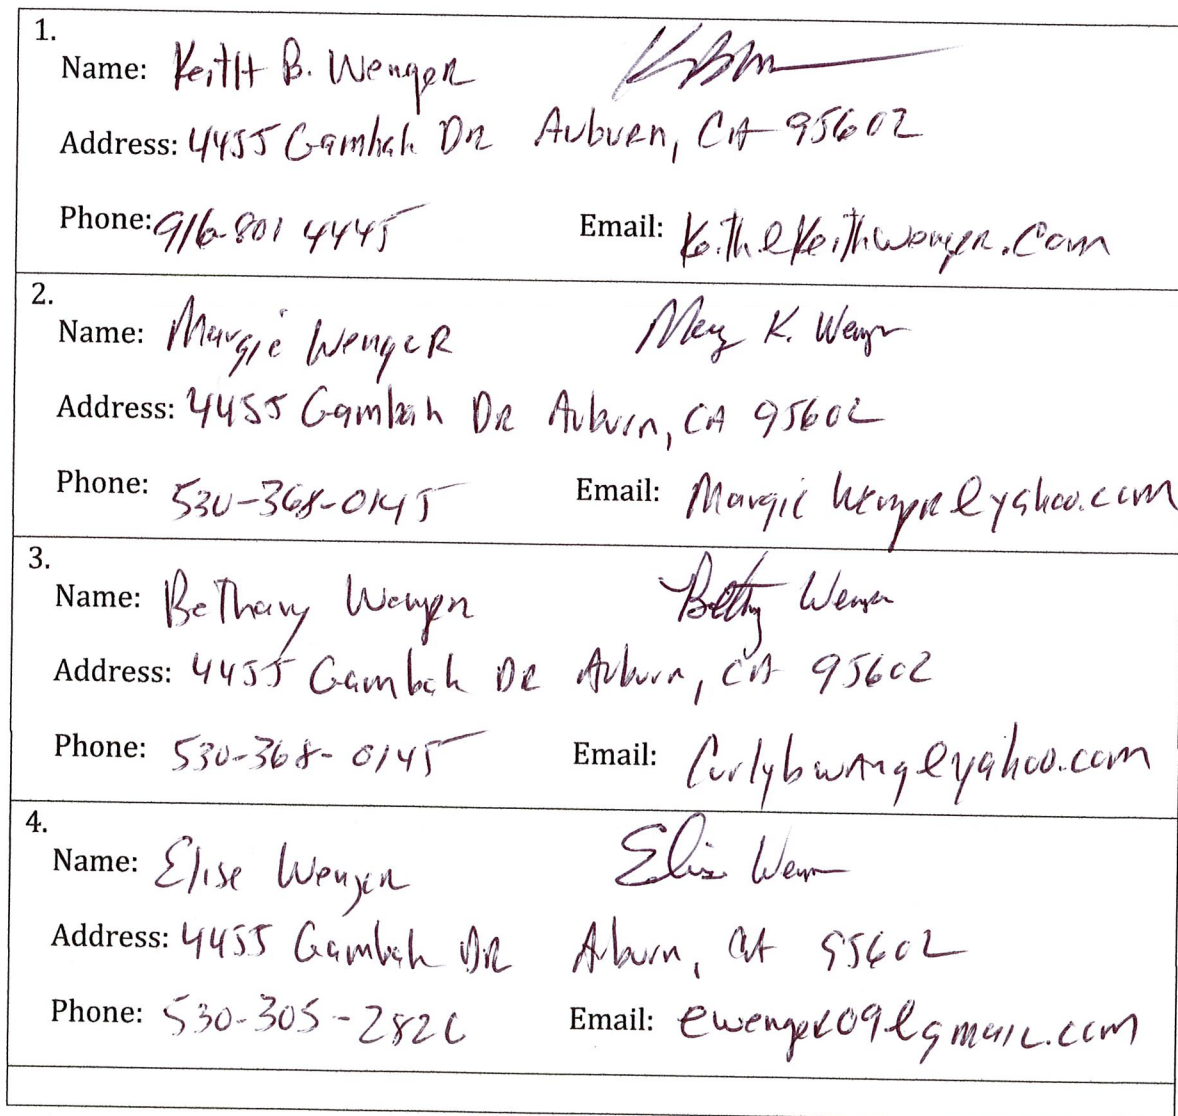 1.
Name: Keith B. Wenger
Address: 4455 Gambah DR Auburn, CA 95602
Phone: 916-801 4445 Email: Keith@keithwenger.com
2.
Name: Margie Wenger Mary K. Wenger
Address: 4455 Gambah DR Auburn, CA 95602
Phone: 530-368-0145 Email: Margie Wenger@yahoo.com
3.
Name: Bethany Wenger Bethany Wenger
Address: 4455 Gambah DR Auburn, CA 95602
Phone: 530-368-0145 Email: Curlybwang@yahoo.com
4.
Name: Elise Wenger Elise Wenger
Address: 4455 Gambah DR Auburn, CA 95602
Phone: 530-305-2826 Email: ewenger09@gmail.com